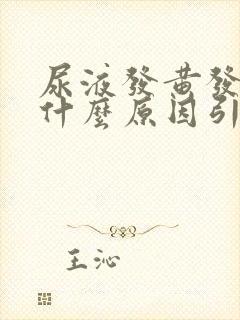 尿液發黃發
什麼原因引
王沁